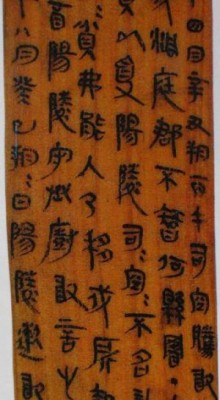 四月辛丑朔丙午司空騰敢
戍洞庭郡不智何縣署·
以受陽陵司〓空〓不名
〓貧弗能入乃移戍所
酉陽陵守丞廚敢言之
八月癸巳朔〓日陽陵遬敢